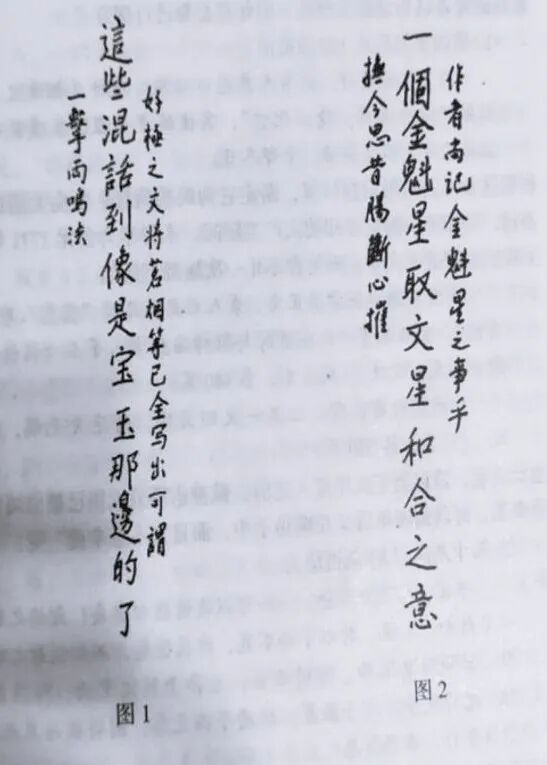 作者尚记金魁星之事乎
一個金魁星取文星和合之意
撫今思昔腸斷心推
图2
好極之文將茗烟等已全写出可謂
這些混話到像是宝玉那邊的了
一擊兩鳴法
图1